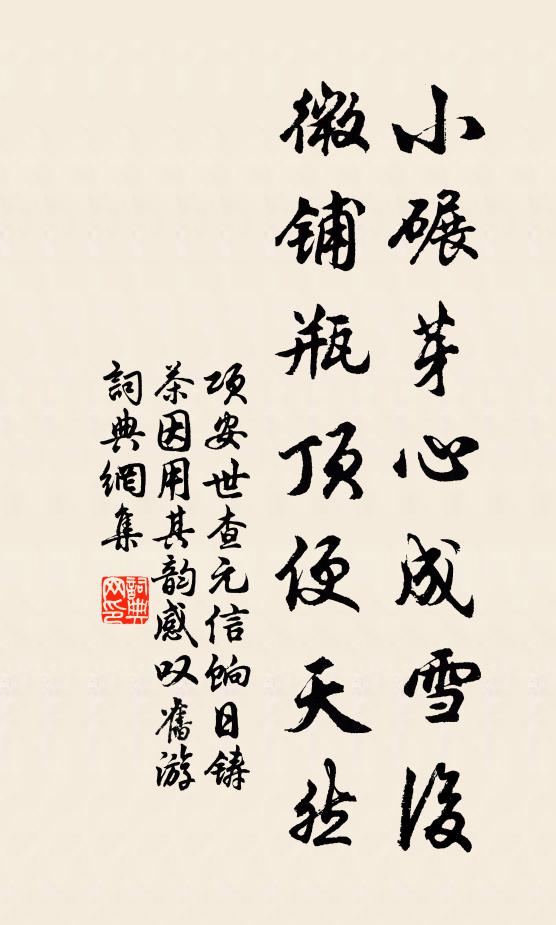 小碾芽心成雪後
微铺瓶顶便天然
项安世查元信餉日鑄
茶因用其韵感叹舊游
詞典網集
詞典
网印